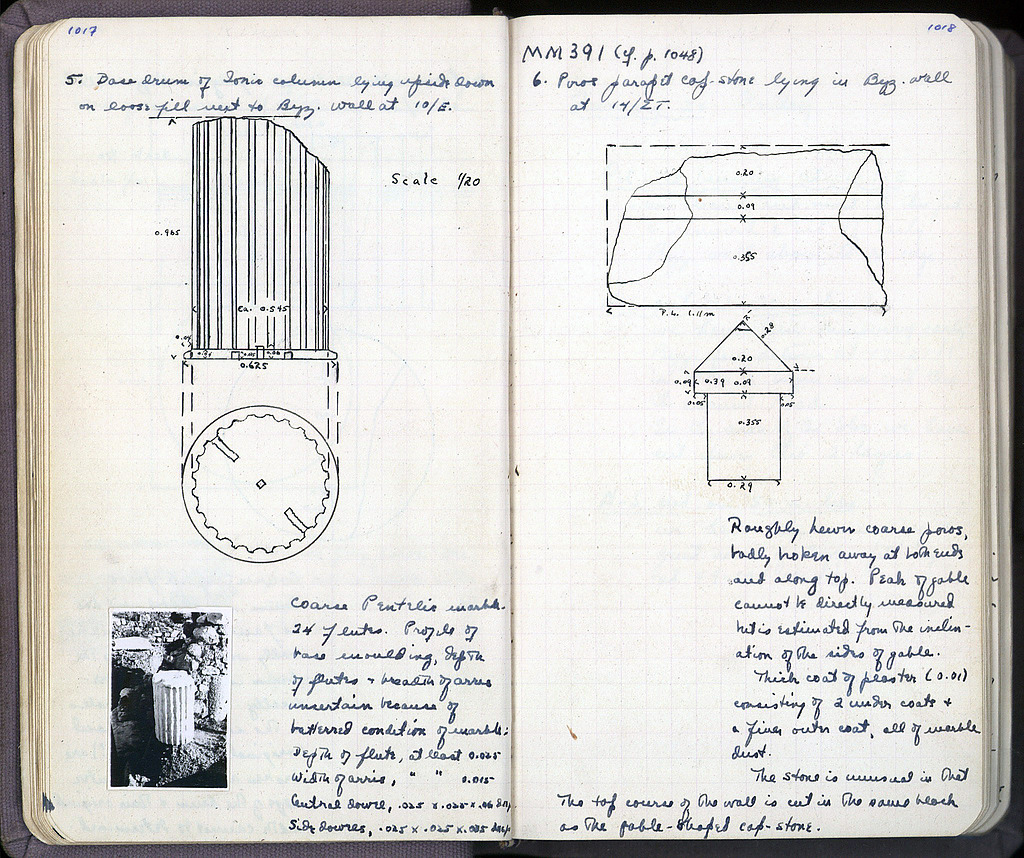 1017
5. Base drum of Ionic column lying upside down
on loose fill next to Byz. wall at 10/E.
Scale 1/20
0.965
Ca. 0.545
0.625
Coarse Pentelic marble.
24 flutes. Profile of
base moulding, depth
of flutes + breadth of arris
uncertain because of
battered condition of marble;
Depth of flute, at least 0.025
Width of arris, " " 0.015
Central dowel, .025 x .025 x .06 deep
Side dowels, .025 x .025 x .035 deep
1018
MM 391 (cf. p. 1048)
6. Poros parapet cap-stone lying in Byz. wall
at 14/ΣΤ.
0.20
0.09
0.355
P.L. 1.11 m
0.28
0.20
0.09 0.39 0.09
0.05 0.05
0.355
0.29
Roughly hewn coarse poros,
badly broken away at both ends
and along top. Peak of gable
cannot be directly measured
but is estimated from the inclin-
ation of the sides of gable.
Thick coat of plaster (0.01)
consisting of 2 under coats +
a finer outer coat, all of marble
dust.
The stone is unusual in that
the top course of the wall is cut in the same block
as the gable-shaped cap-stone.